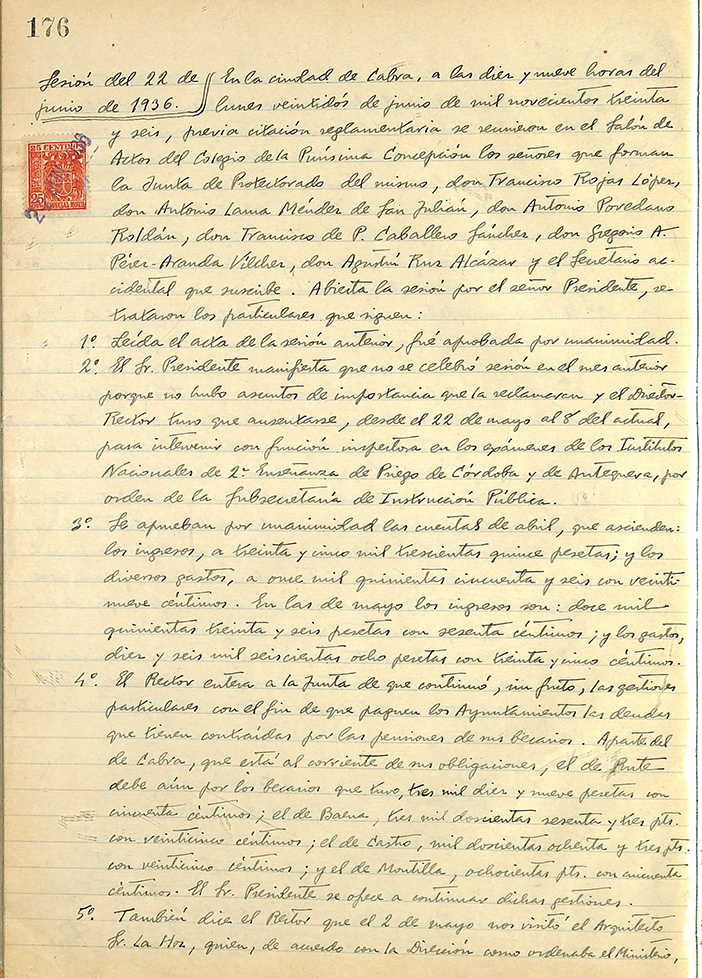 176
Sesión del 22 de
junio de 1936.
En la ciudad de Cabra, a las diez y nueve horas del
lunes veintidós de junio de mil novecientos treinta
y seis, previa citación reglamentaria se reunieron en el Salón de
Actos del Colegio de la Purísima Concepción los señores que forman
la Junta de Protectorado del mismo, don Francisco Rojas López,
don Antonio Lama Méndez de San Julián, don Antonio Povedano
Roldán, don Francisco de P. Caballero Sánchez, don Gregorio A.
Pérez-Aranda Vílchez, don Agustín Ruz Alcázar y el Secretario ac-
cidental que suscribe. Abierta la sesión por el señor Presidente, se
trataron los particulares que siguen:
1º. Leída el acta de la sesión anterior, fué aprobada por unanimidad.
2º. El Sr. Presidente manifiesta que no se celebró sesión en el mes anterior
porque no hubo asuntos de importancia que la reclamaran y el Director-
Rector tuvo que ausentarse, desde el 22 de mayo al 8 del actual,
para intervenir con función inspectora en los exámenes de los Institutos
Nacionales de 2ª Enseñanza de Priego de Córdoba y de Antequera, por
orden de la Subsecretaría de Instrucción Pública.
3º. Se aprueban por unanimidad las cuentas de abril, que ascienden:
los ingresos, a treinta y cinco mil trescientas quince pesetas; y los
diversos gastos, a once mil quinientas cincuenta y seis con veinti-
nueve céntimos. En las de mayo los ingresos son: doce mil
quinientas treinta y seis pesetas con sesenta céntimos; y los gastos,
diez y seis mil seiscientas ocho pesetas con treinta y cinco céntimos.
4º. El Rector entera a la Junta de que continuó, sin fruto, las gestiones
particulares con el fin de que paguen los Ayuntamientos las deudas
que tienen contraidas por las pensiones de sus becarios. Aparte del
de Cabra, que está al corriente de sus obligaciones, el de Rute
debe aún por los becarios que tuvo, tres mil diez y nueve pesetas con
cincuenta céntimos; el de Baena, tres mil doscientas sesenta y tres pts.
con veinticinco céntimos; el de Castro, mil doscientas ochenta y tres pts.
con veinticinco céntimos; y el de Montilla, ochocientas pts. con cincuenta
céntimos. El Sr. Presidente se ofece a continuar dichas gestiones.
5º. También dice el Rector que el 2 de mayo nos visitó el Arquitecto
Sr. La Hoz, quien, de acuerdo con la Dirección como ordenaba el Ministerio,
25 CENTIMOS
25